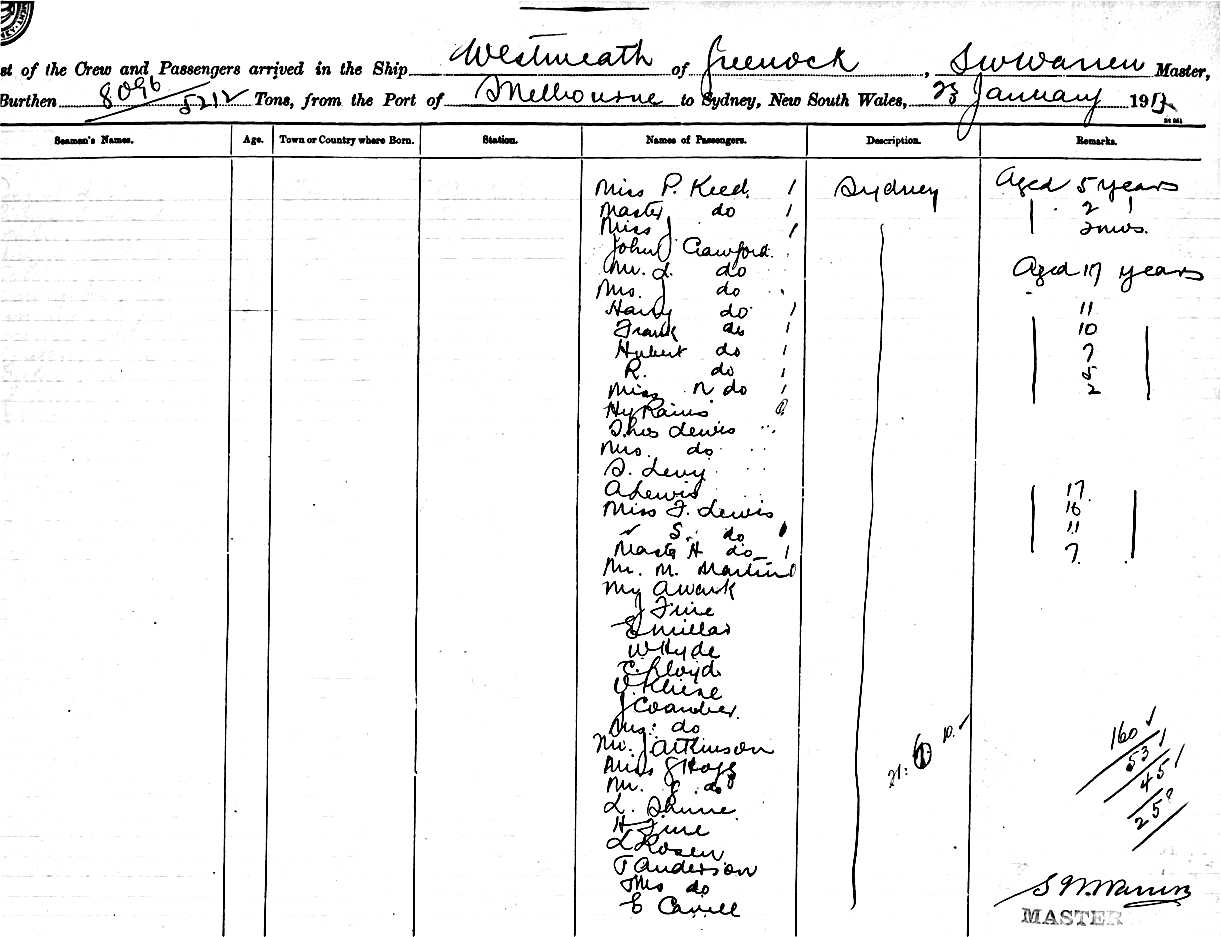 st of the Crew and Passengers arrived in the Ship Westmeath of Greenock, S W Warren Master,
Burthen 8096 / 5212 Tons, from the Port of Melbourne to Sydney, New South Wales, 23 January 191
Seamen's Names. Age. Town or Country where Born. Station. Names of Passengers. Description. Remarks.
Miss P. Reed. 1 Sydney Aged 5 years
Master do 1 2
Miss J 1 2 mos.
John Crawford
Mr. L. do Aged 17 years
Mrs. J do
Harry do 1 11
Frank do 1 10
Hubert do 1 7
R. do 1
Miss N do 1 2
Hy Rains
Thos Lewis
Mrs. do
S. Levy
A Lewis 17
Miss F. Lewis 16
S. do 11
Master H do 1 7
Mr. M. Martin
J Fine
E Millar
W Hyde
C. Lloyd
V. Kliene
J Coander
Mrs. do
Mr. J Atkinson
Miss J
Mr. do
L.
H Fine
L Rosen
T Anderson
Mrs do
E Cavell
21: 10.
160
53
45
25
S W Warren
MASTER